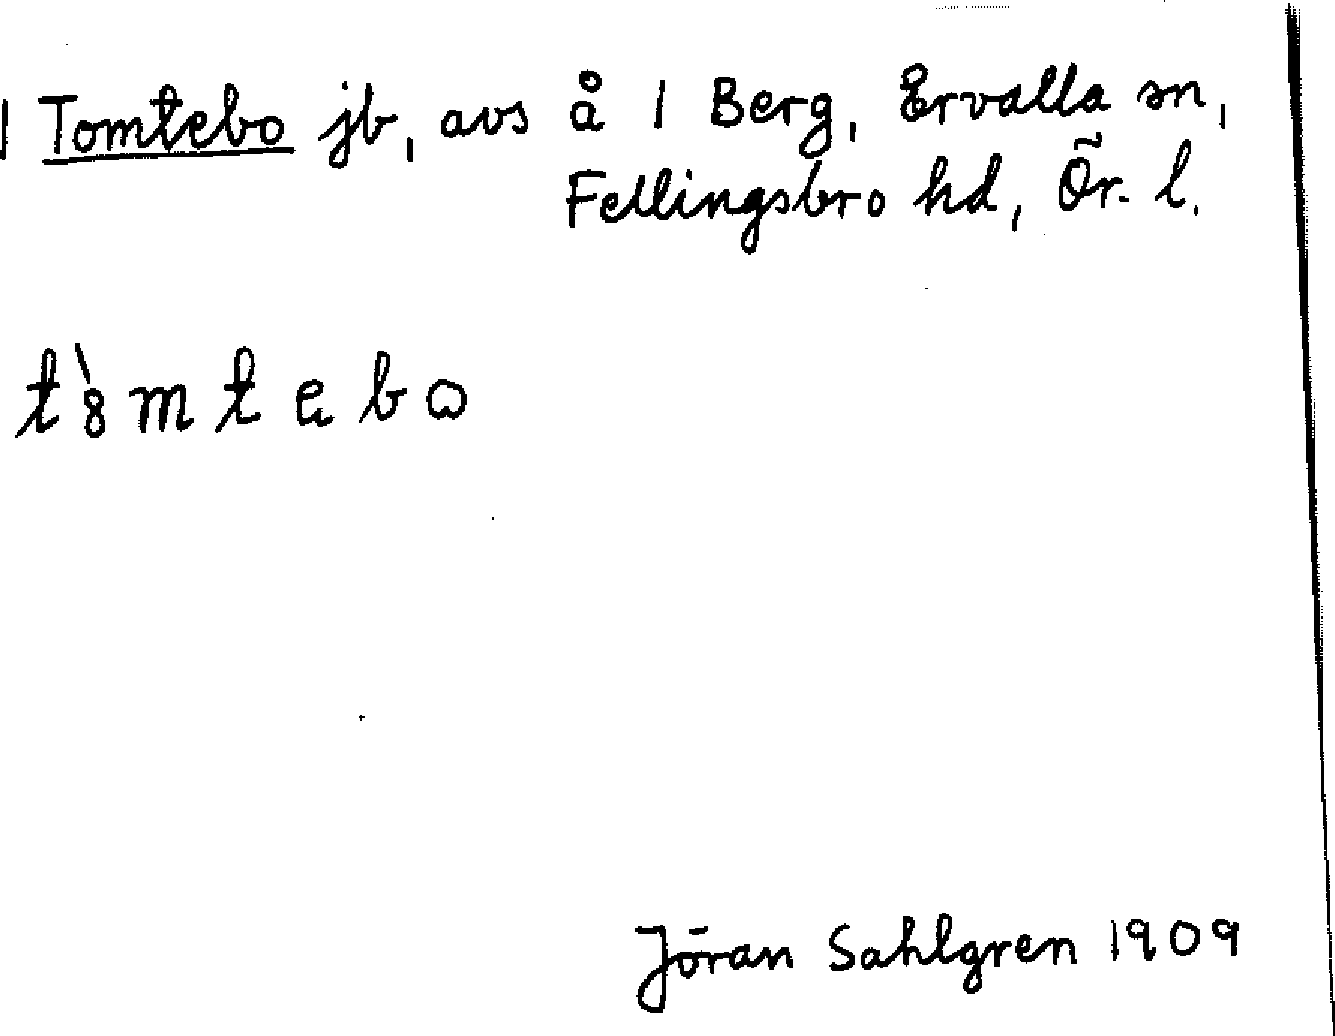 1 Tomtebo jb, avs å 1 Berg, Ervalla sn,
Fellingsbro hd, Ör. l.
t`8mtebo
Jöran Sahlgren 1909